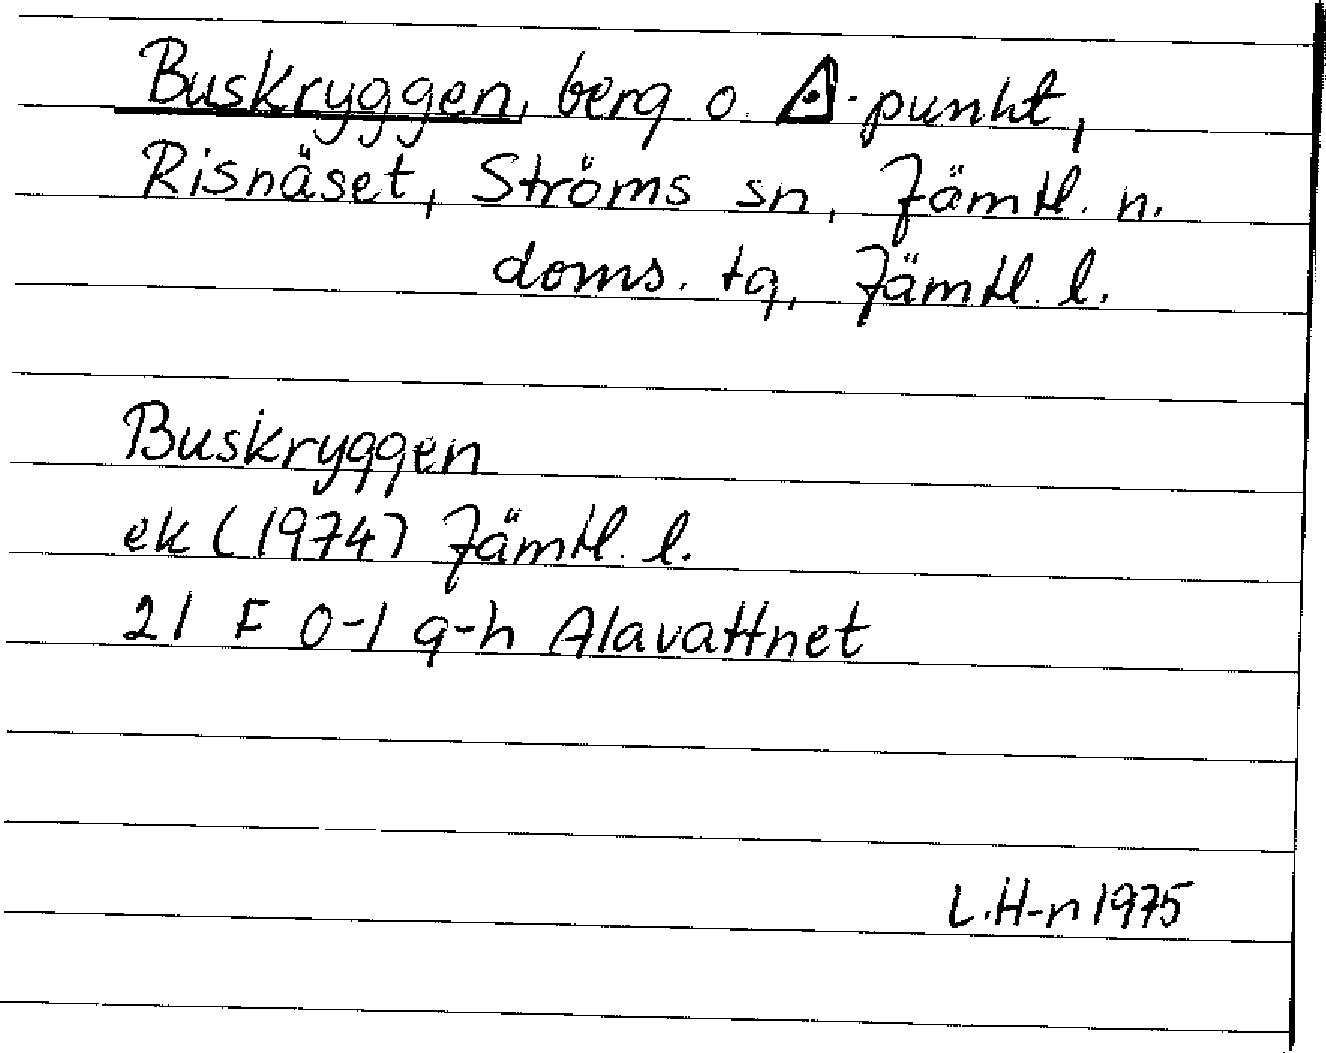 Buskryggen, berg o. ◬-punkt,
Risnäset, Ströms sn, Jämtl. n.
doms. tg, Jämtl. l.
Buskryggen
ek (1974) Jämtl. l.
21 F 0-1 g-h Alavattnet
L.H-n 1975